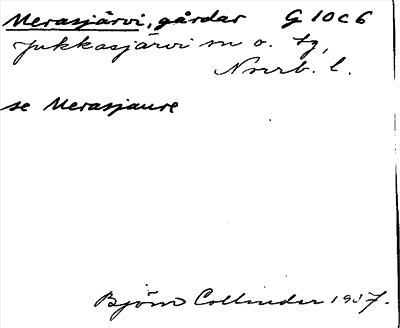 Merasjärvi, gårdar G 10 c 6
Jukkasjärvi sn o. tg,
Nrrb. l.
se Merasjaure
Björn Collinder 1937.